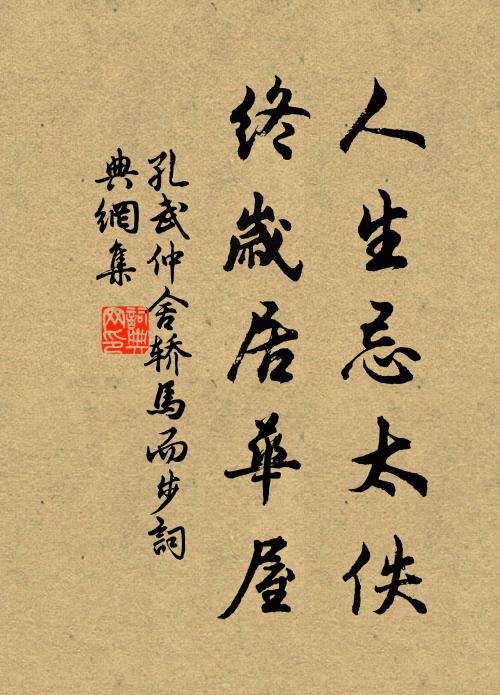 人生忌太佚
終歲居華屋
孔武仲舍轿馬而步詞
典網集
詞典
网印